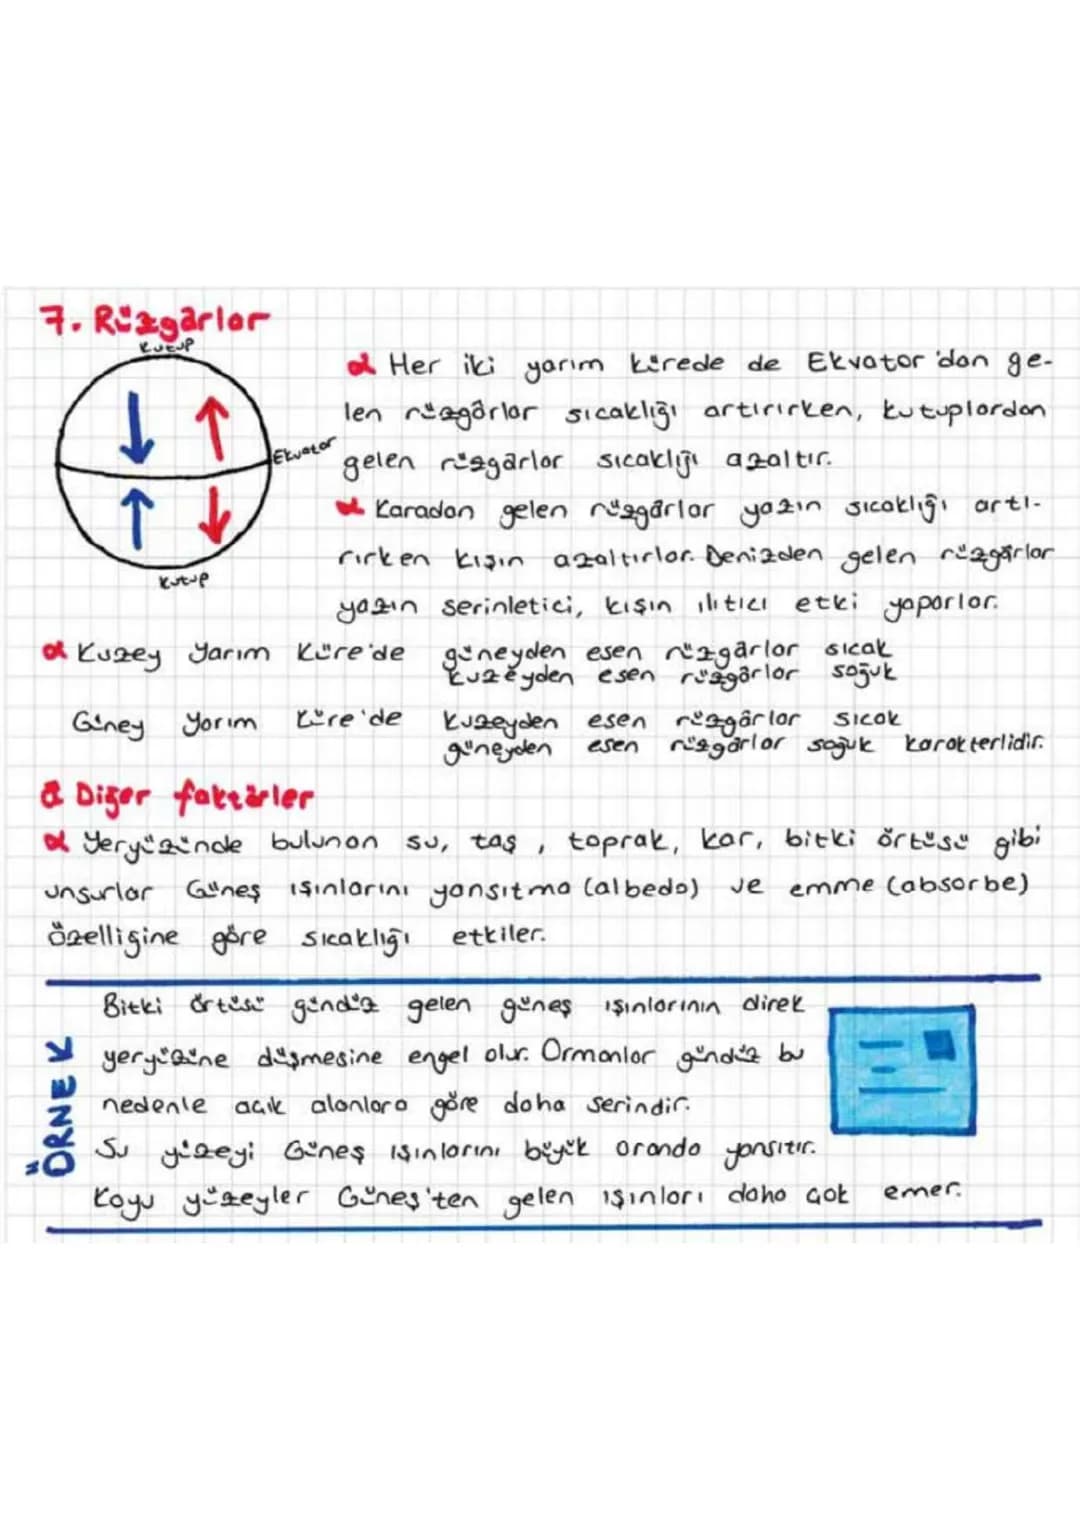 7. Rüzgârlar
Kutup
Ekvator
Kutup
Her iki yarım kürede de Ekvator'dan ge-
len rüzgârlar sıcaklığı artırırken, kutuplardan
gelen rüzgârlar sıcaklığı azaltır.
Karadan gelen rüzgârlar yazın sıcaklığı artı-
rırken kışın azaltırlar. Denizden gelen rüzgârlar
yazın serinletici, kışın ılıtıcı etki yaparlar.
Kuzey Yarım Küre'de güneyden esen rüzgârlar sıcak
kuzeyden esen rüzgârlar soğuk
Güney Yarım Küre'de kuzeyden esen rüzgârlar sıcak
güneyden esen rüzgârlar soğuk karakterlidir.
8. Diğer faktörler
Yeryüzünde bulunan su, taş, toprak, kar, bitki örtüsü gibi
unsurlar Güneş ışınlarını yansıtma (albedo) ve emme (absorbe)
özelliğine göre sıcaklığı etkiler.
ÖRNEK
Bitki örtüsü gündüz gelen güneş ışınlarının direk
yeryüzüne düşmesine engel olur. Ormanlar gündüz bu
nedenle açık alanlara göre daha serindir.
Su yüzeyi Güneş ışınlarını büyük oranda yansıtır.
Koyu yüzeyler Güneş'ten gelen ışınları daha çok emer.